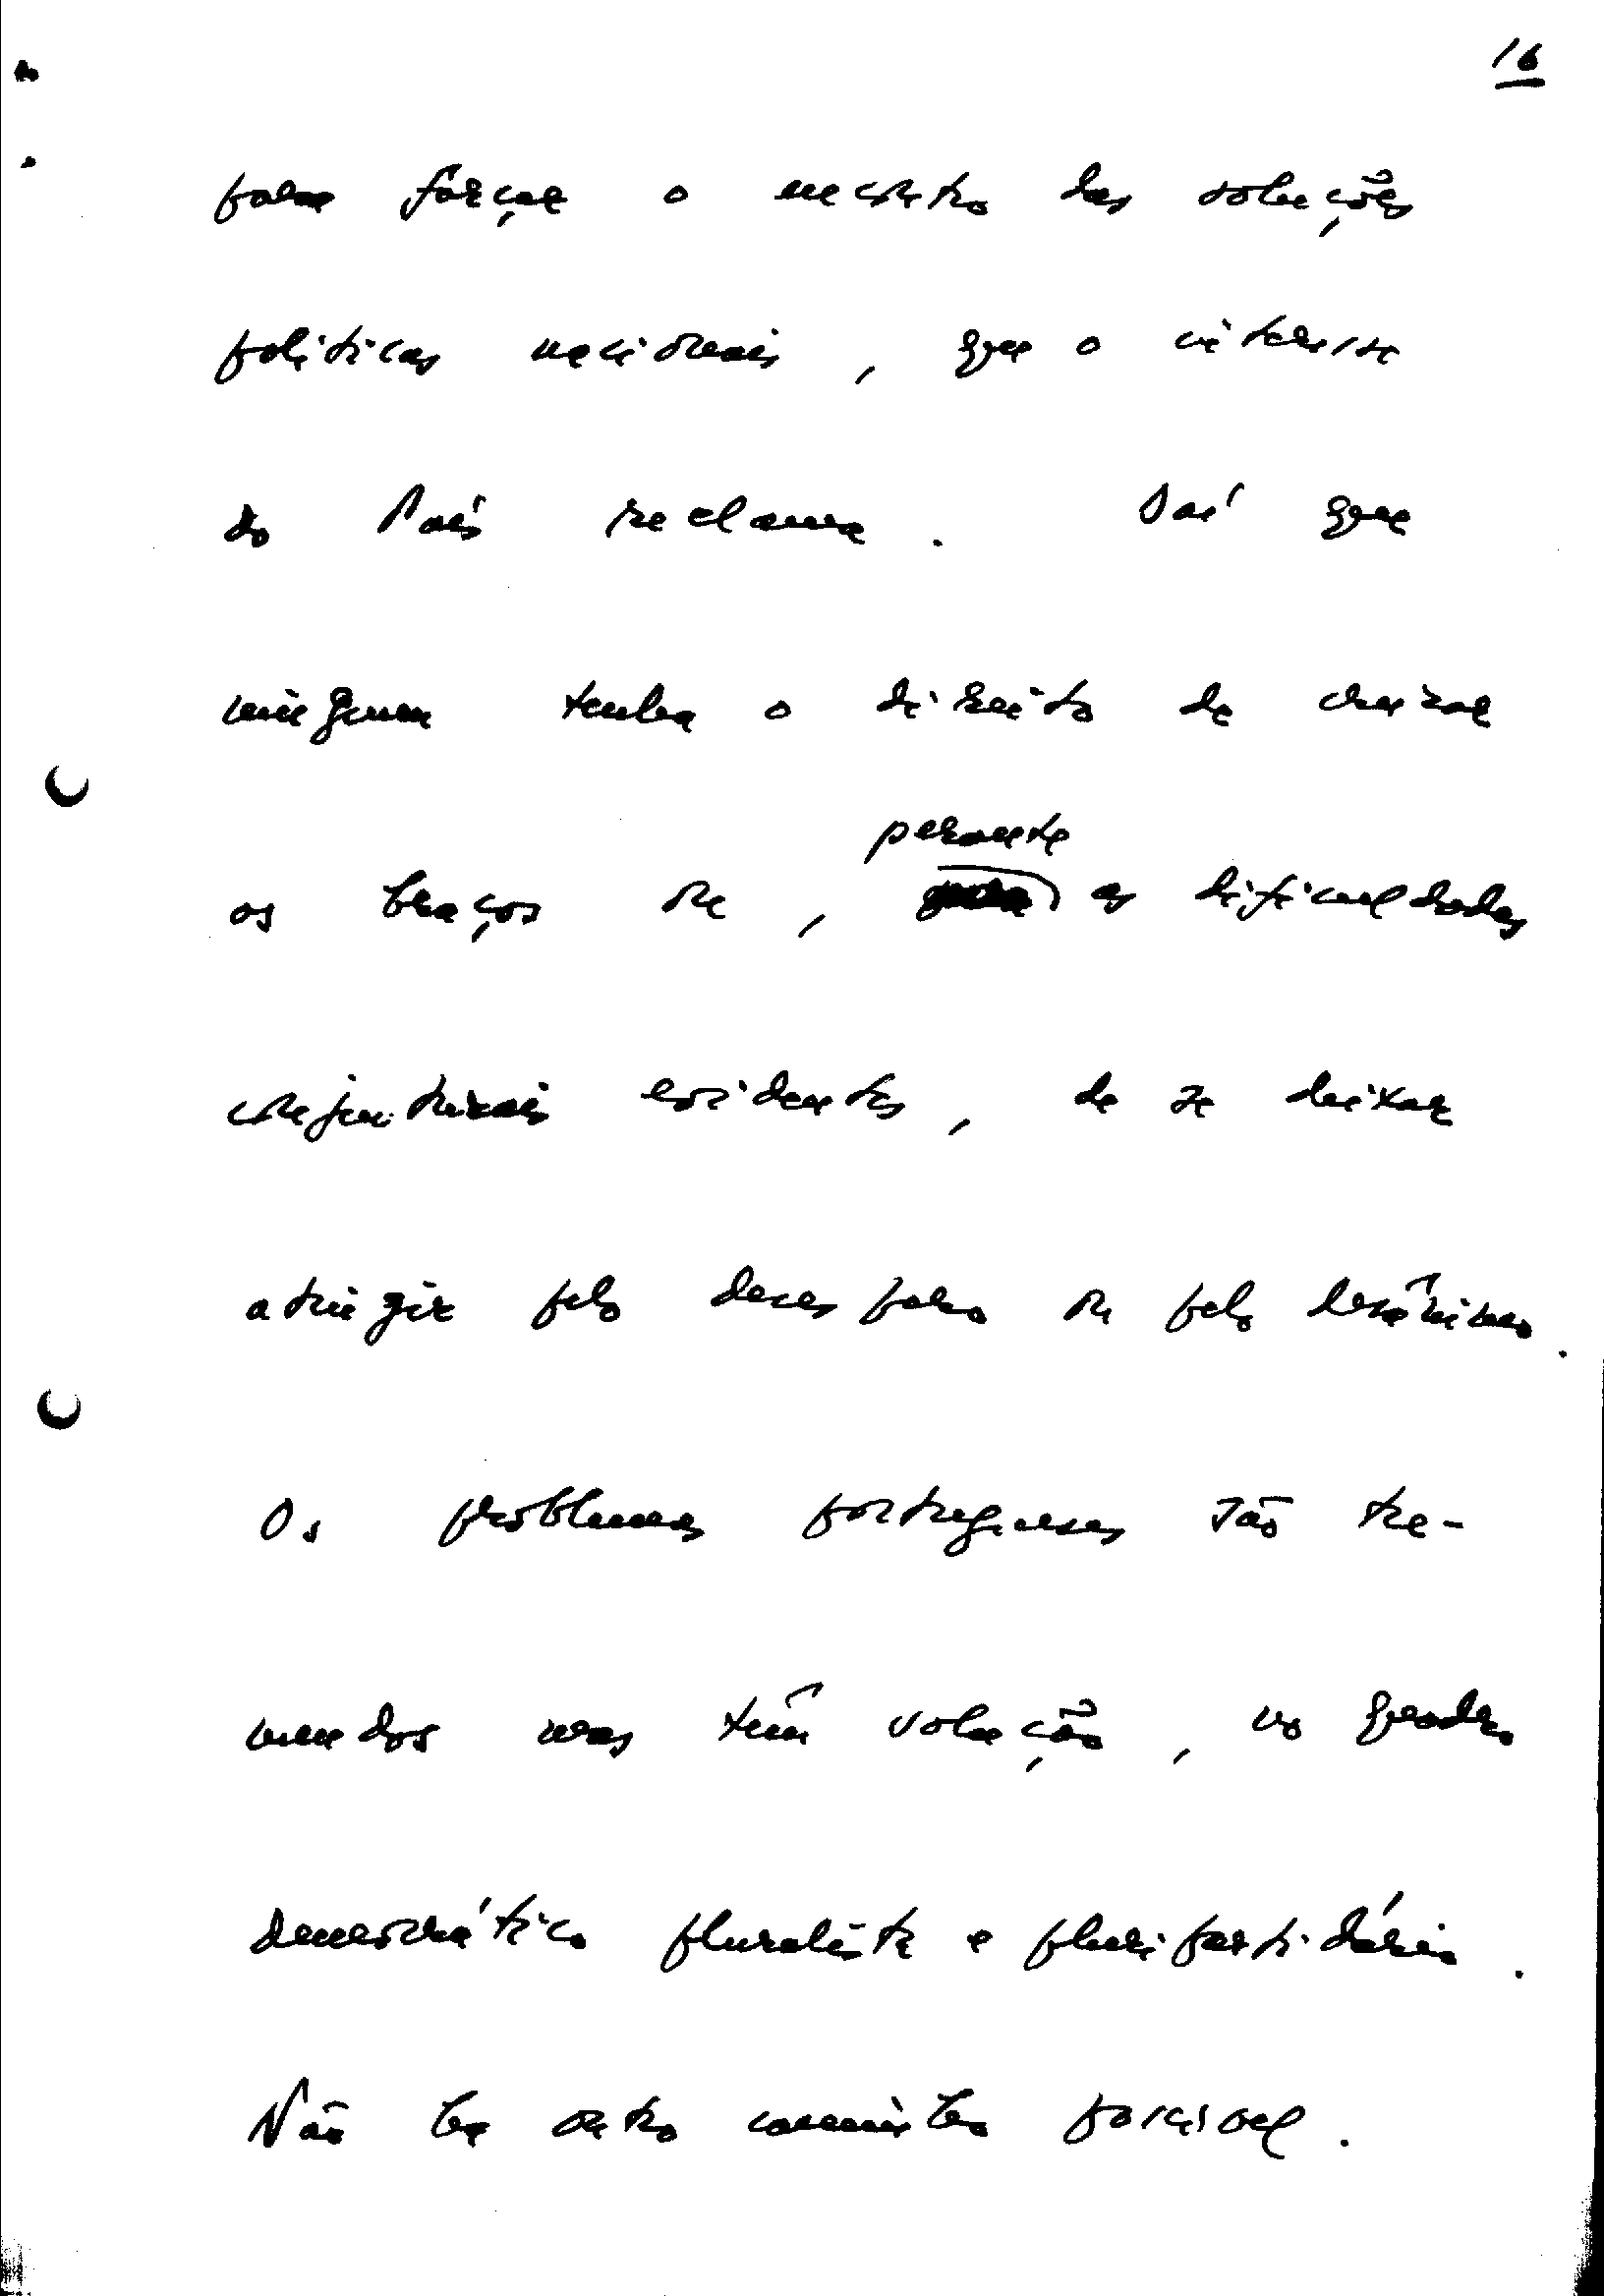 16
para forçar o encontro das soluções
políticas nacionais, que o interesse
do País reclama. Daí que
ninguem tenha o direito de cruzar
perante
os braços ou, as dificuldades
conjunturais evidentes, de se deixar
atingir pelo desespero ou pelo desânimo.
Os problemas portugueses são tre-
mendos mas têm solução, no quadro
democrático pluralista e pluripartidário.
Não há outro caminho possível.